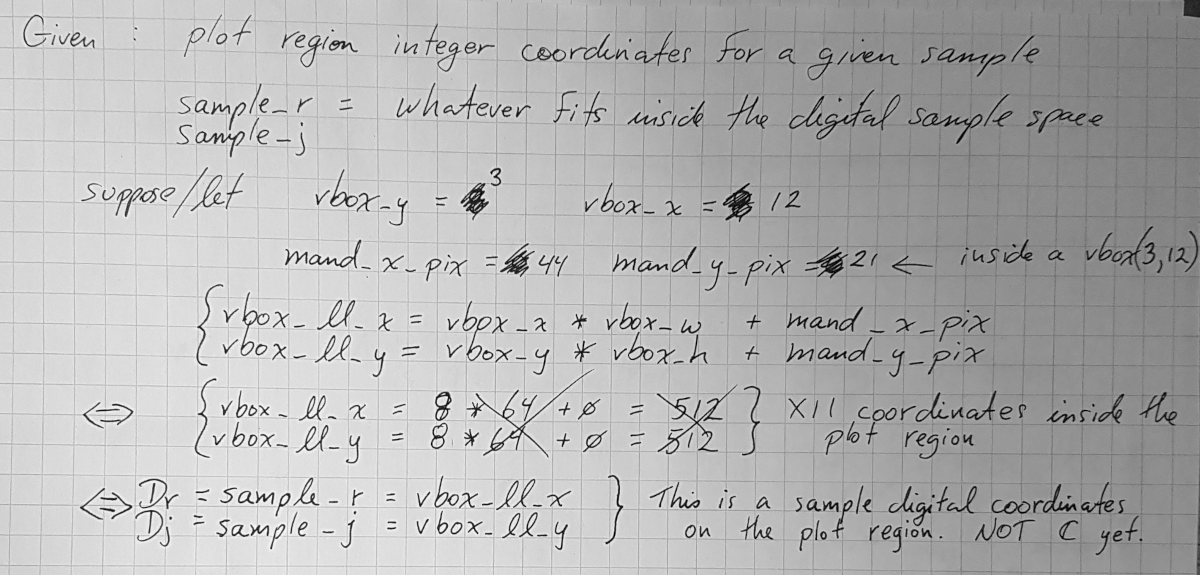 Given : plot region integer coordinates for a given sample
sample_r = whatever fits inside the digital sample space
sample_j
suppose/let vbox_y = 3 vbox_x = 12
mand_x_pix = 44 mand_y_pix = 21 ← inside a vbox(3,12)
{ vbox_ll_x = vbox_x * vbox_w + mand_x_pix
{ vbox_ll_y = vbox_y * vbox_h + mand_y_pix
⇔ { vbox_ll_x = 8 * 64 + 0 = 512 } X11 coordinates inside the
{ vbox_ll_y = 8 * 64 + 0 = 512 } plot region
⇔ Dr = sample_r = vbox_ll_x } This is a sample digital coordinates
Dj = sample_j = vbox_ll_y } on the plot region. NOT C yet.